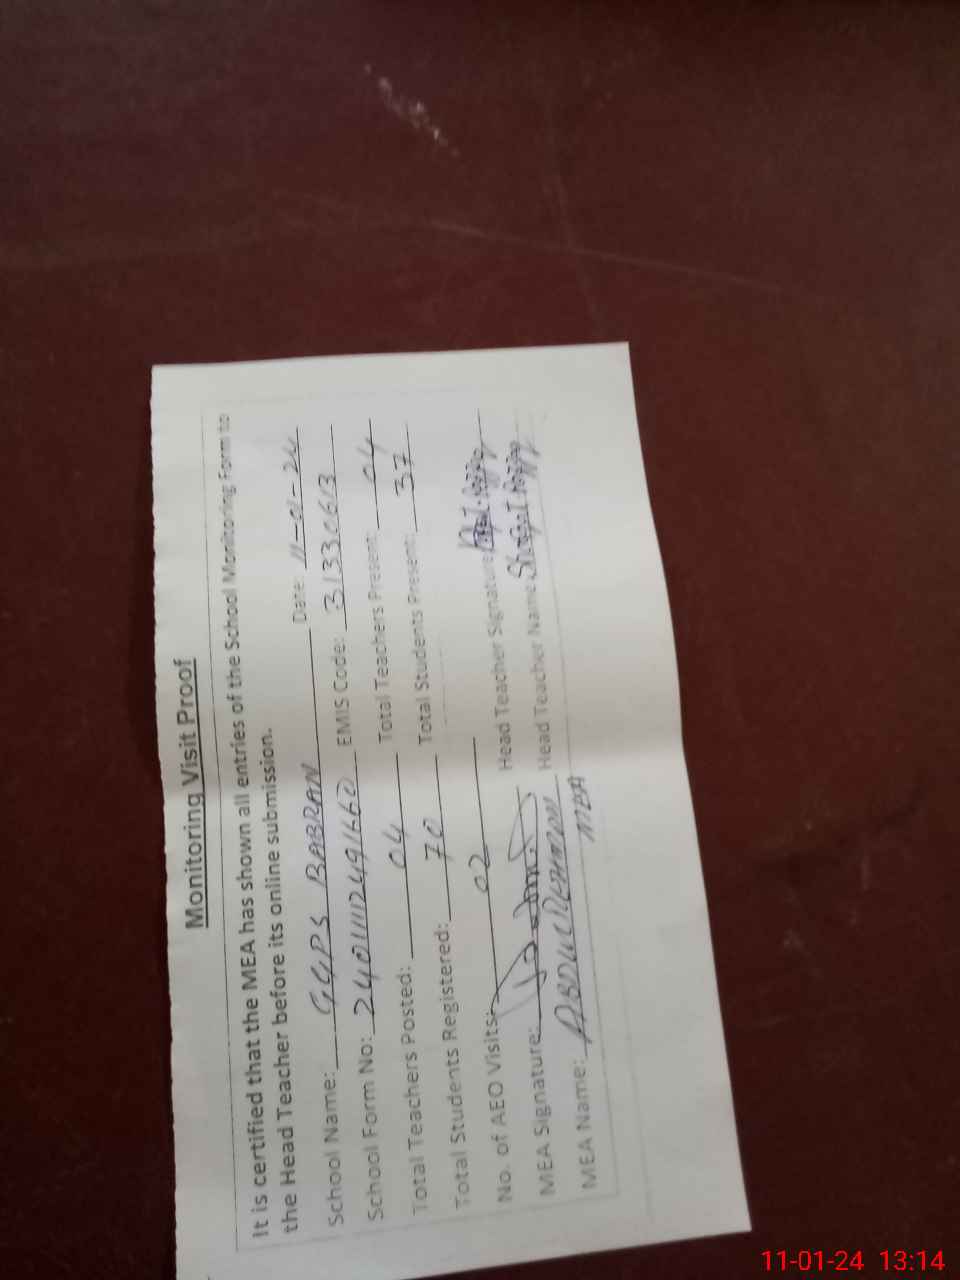 Monitoring Visit Proof
It is certified that the MEA has shown all entries of the School Monitoring Form to
the Head Teacher before its online submission.
School Name: GGPS BABRAN Date: 11-01-24
School Form No: 24011112491660 EMIS Code: 31330613
Total Teachers Posted: 04 Total Teachers Present: 04
Total Students Registered: 70 Total Students Present: 37
No. of AEO Visits: 02
MEA Signature: Head Teacher Signature
MEA Name: ABDUL REHMAN Head Teacher Name
MEA
11-01-24 13:14